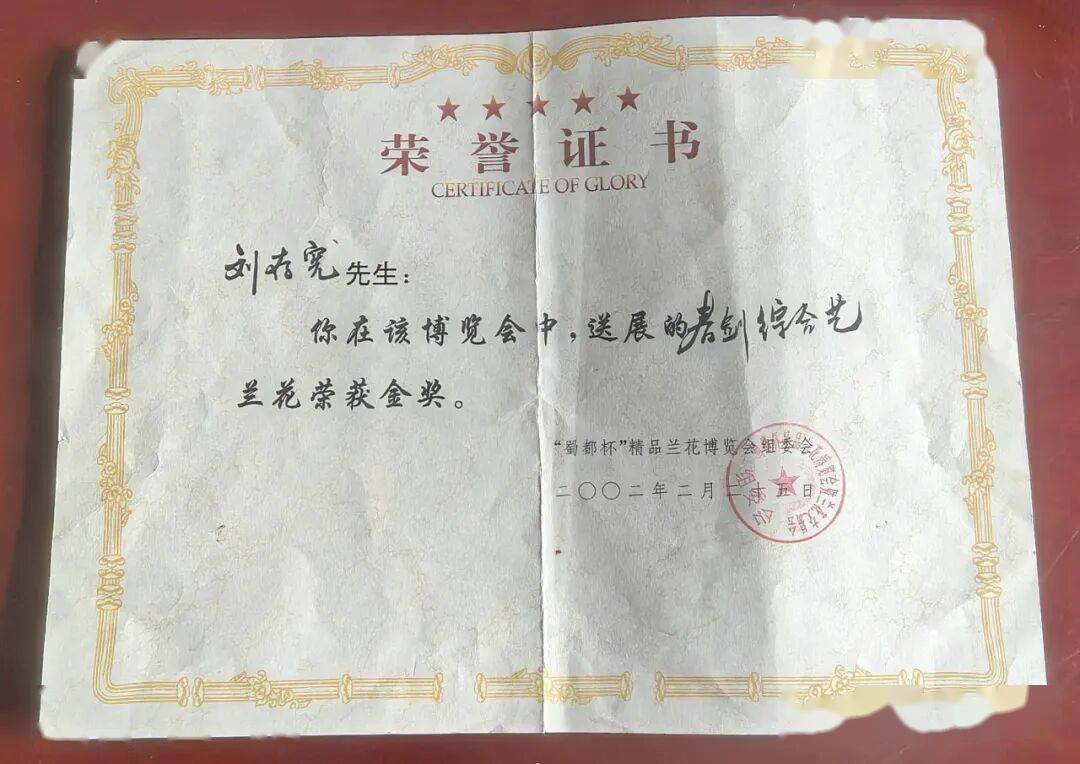 荣誉证书
CERTIFICATE OF GLORY
刘存宪先生：
你在该博览会中，送展的春剑综合艺
兰花荣获金奖。
“蜀都杯”精品兰花博览会组委会
二〇〇二年二月二十五日
组委会